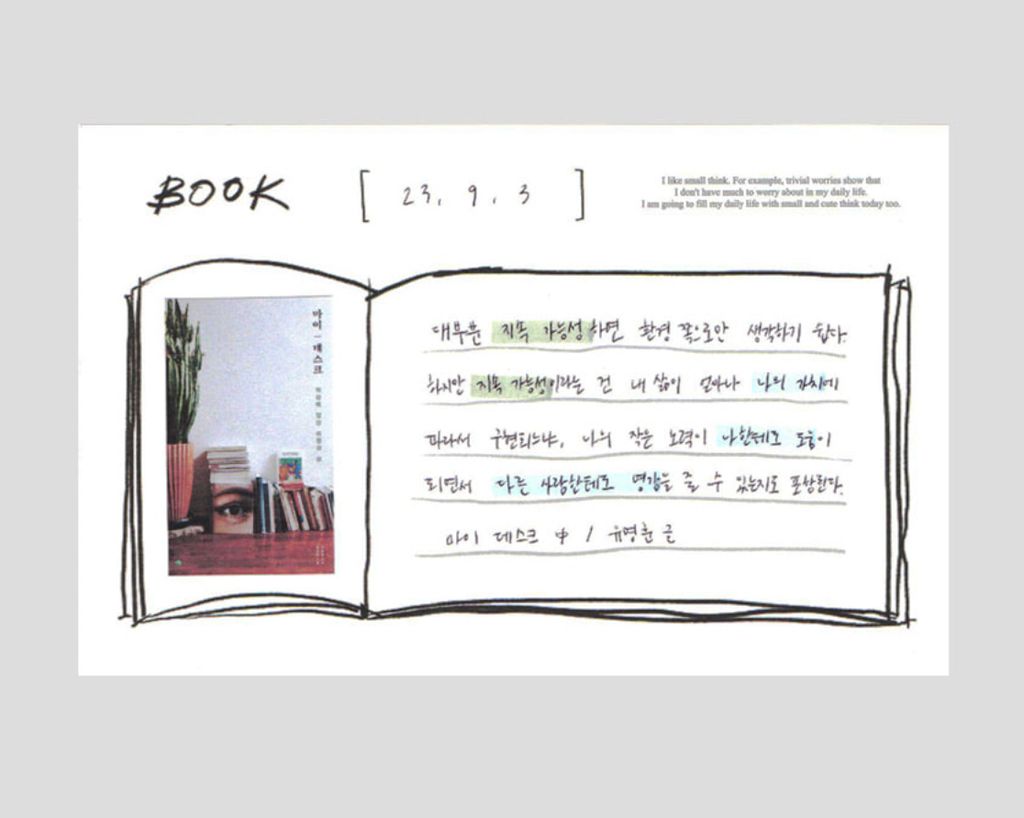 BOOK
[ 23. 9. 3 ]
I like small think. For example, trivial worries show that
I don't have much to worry about in my daily life.
I am going to fill my daily life with small and cute think today too.
마이 데스크
대부분 지속 가능성 하면 환경 쪽으로만 생각하기 쉽다.
하지만 지속 가능성이라는 건 내 삶이 얼마나 나의 가치에
따라서 구현되느냐, 나의 작은 노력이 나한테도 도움이
되면서 다른 사람한테도 영감을 줄 수 있는지로 포상된다.
마이 데스크 中 / 유명훈 글